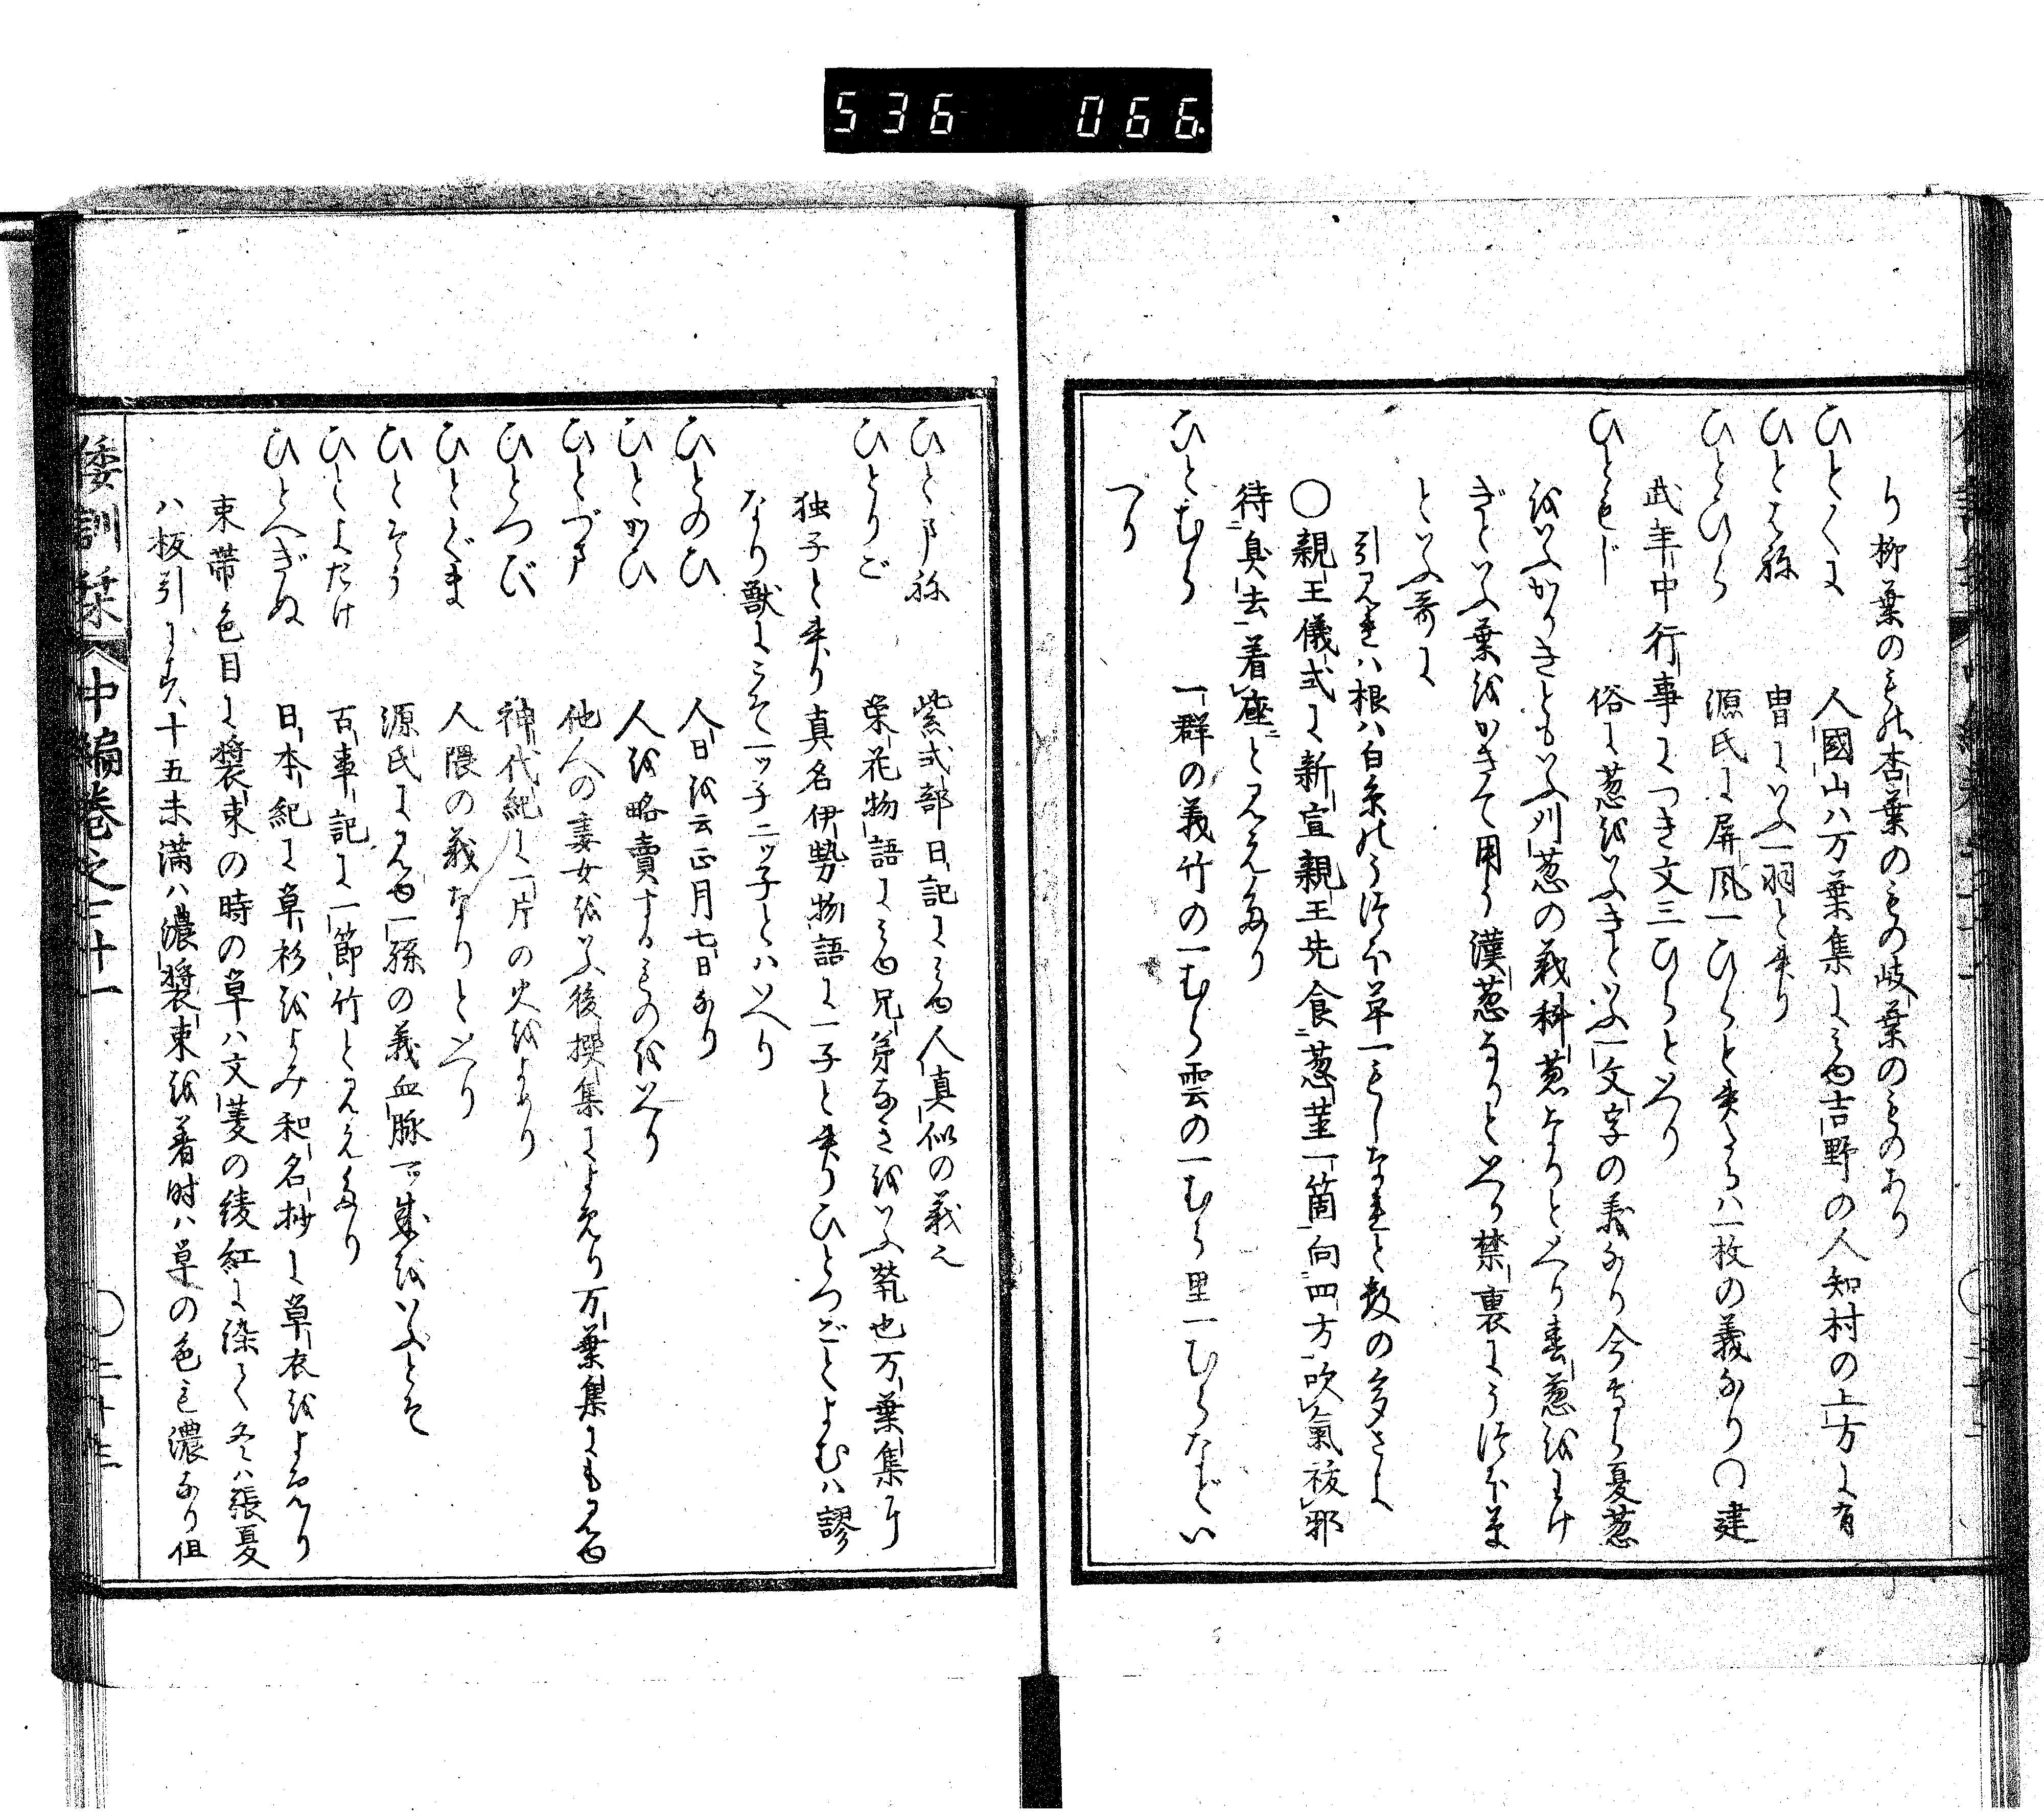 536 066
り柳葉のもの杏葉のもの岐葉のものあり
ひとくに 人國山ハ万葉集にみゆ吉野の人知村の上方に有
ひとはね 冑にいふ一羽と書り
ひとひら 源氏に屏風一ひらと書たるハ一枚の義なり〇建
武年中行事につき文三ひらといへり
ひともじ 俗に葱をいふきといふ一文字の義なり今専ら夏葱
をいふかりきともいふ刈葱の義科葱なりといへり春葱をわけ
ぎといふ葉をかきて用う漢葱なりといへり禁裏にうつぼ草
といふ哥に
引みれハ根ハ白糸のうつぼ草一もしなれと数の多さよ
〇親王儀式に新宣親王先食葱茎一箇向四方吹氣祓邪
待臭去着座とみえたり
ひとむら 一群の義竹の一むら雲の一むら里一むらなどい
へり
ひとまね 紫式部日記にみゆ人真似の義也
ひとりご 栄花物語にみゆ兄弟なきをいふ煢也万葉集に
独子と書り真名伊勢物語に一子と書りひとつごとよむハ謬
なり獣にこそ一ッ子二ッ子とハいへり
ひとのひ 人日を云正月七日なり
ひとかひ 人を略賣するものをいへり
ひとづま 他人の妻女をいふ後撰集によめり万葉集にもみゆ
ひとつび 神代紀に一片の火をよめり
ひとぐま 人隈の義なりといへり
ひとぞう 源氏にみゆ一孫の義血脉一家をいふとぞ
ひとよたけ 百事記に一節竹とみえたり
ひとへぎぬ 日本紀に単衫をよみ和名抄に単衣をよめり
束帯色目に装束の時の単ハ文菱の綾紅に染て冬ハ張夏
ハ板引にす十五未満ハ濃装束を着時ハ単の色も濃なり但
倭訓栞 中編巻之二十一